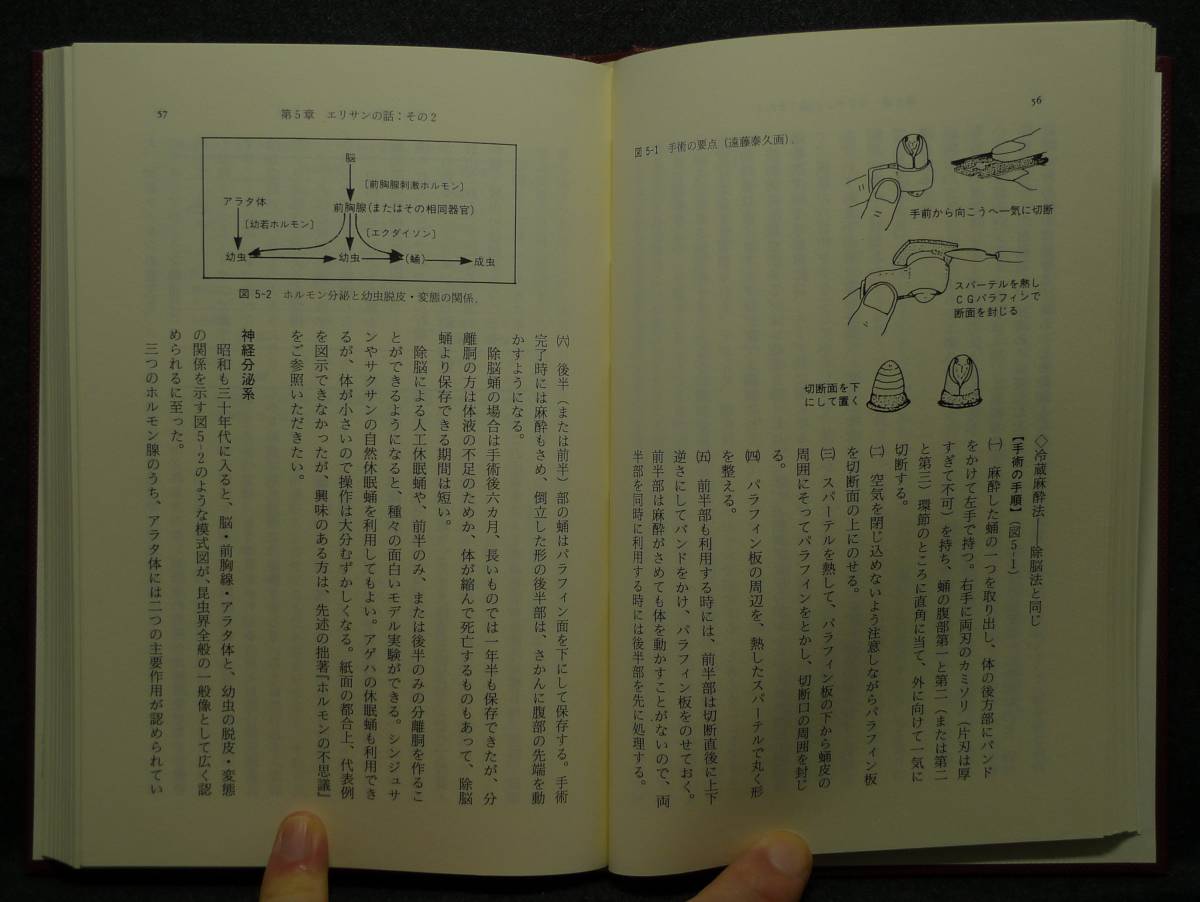 56
図5-1 手術の要点（遠藤泰久画）．
手前から向こうへ一気に切断
スパーテルを熱し
CGパラフィンで
断面を封じる
切断面を下
にして置く
◇冷蔵麻酔法――除脳法と同じ
【手術の手順】（図5-1）
㈠　麻酔した蛹の一つを取り出し、体の後方部にバンド
をかけて左手で持つ。右手に両刃のカミソリ（片刃は厚
すぎて不可）を持ち、蛹の腹部第一と第二（または第二
と第三）環節のところに直角に当て、外に向けて一気に
切断する。
㈡　空気を閉じ込めないよう注意しながらパラフィン板
を切断面の上にのせる。
㈢　スパーテルを熱して、パラフィン板の下から蛹皮の
周囲にそってパラフィンをとかし、切断口の周囲を封じ
る。
㈣　パラフィン板の周辺を、熱したスパーテルで丸く形
を整える。
㈤　前半部も利用する時には、前半部は切断直後に上下
逆さにしてバンドをかけ、パラフィン板をのせておく。
前半部は麻酔がさめても体を動かすことがないので、両
半部を同時に利用する時には後半部を先に処理する。
57
第5章　エリサンの話：その2
脳
[前胸腺刺激ホルモン]
アラタ体
前胸腺(またはその相同器官)
[幼若ホルモン]
[エクダイソン]
幼虫
幼虫
(蛹)
成虫
図5-2　ホルモン分泌と幼虫脱皮・変態の関係．
㈥　後半（または前半）部の蛹はパラフィン面を下にして保存する。手術
完了時には麻酔もさめ、倒立した形の後半部は、さかんに腹部の先端を動
かすようになる。
除脳蛹の場合は手術後六カ月、長いものでは一年半も保存できたが、分
離胴の方は体液の不足のためか、体が縮んで死亡するものもあって、除脳
蛹より保存できる期間は短い。
除脳による人工休眠蛹や、前半のみ、または後半のみの分離胴を作るこ
とができるようになると、種々の面白いモデル実験ができる。シンジュサ
ンやサクサンの自然休眠蛹を利用してもよい。アゲハの休眠蛹も利用でき
るが、体が小さいので操作は大分むずかしくなる。紙面の都合上、代表例
を図示できなかったが、興味のある方は、先述の拙著『ホルモンの不思議』
をご参照いただきたい。
神経分泌系
昭和も三十年代に入ると、脳・前胸線・アラタ体と、幼虫の脱皮・変態
の関係を示す図5-2のような模式図が、昆虫界全般の一般像として広く認
められるに至った。
三つのホルモン腺のうち、アラタ体には二つの主要作用が認められてい